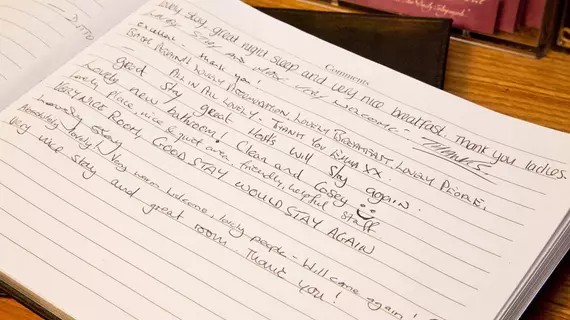 DITTO
Comments
Lovely stay, great night sleep and very nice breakfast. Thank you ladies.
LOVELY STAY AND VERY WELCOME -
excellent. thank you!
SUPER BREAKFAST, LOVELY PEOPLE.
ALL IN ALL LOVELY. THANK YOU XX.
great stay great Hosts will stay again.
Lovely new bathroom! Clean and Cosey
Lovely place nice & quiet area, friendly, helpful staff
VERY NICE ROOM, GOOD STAY WOULD STAY AGAIN
Absolutely lovely! Very warm welcome, lovely people - Will come again!
Very nice stay and great room Thank You!